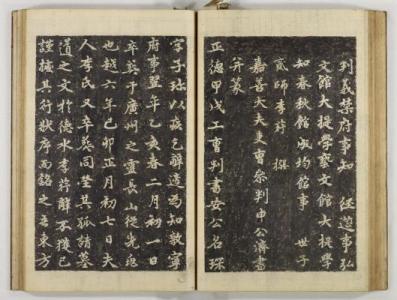 判義禁府事知 經筵事弘
文館大提學藝文館大提學
知春秋館成均館事 世子
貳師李荇 撰
嘉善大夫吏曹參判申公濟書
幷篆
正德甲戌工曹判書安公名琛
字子珍以疾乞辭遞爲知敦寧
府事翌年乙亥春二月初一日
卒葬于廣州之靈長山從先兆
也越六年己卯正月初七日夫
人李氏又卒葬同塋其孤請墓
道之文於德水李荇辭不獲已
謹據其行狀序而銘之吾東方